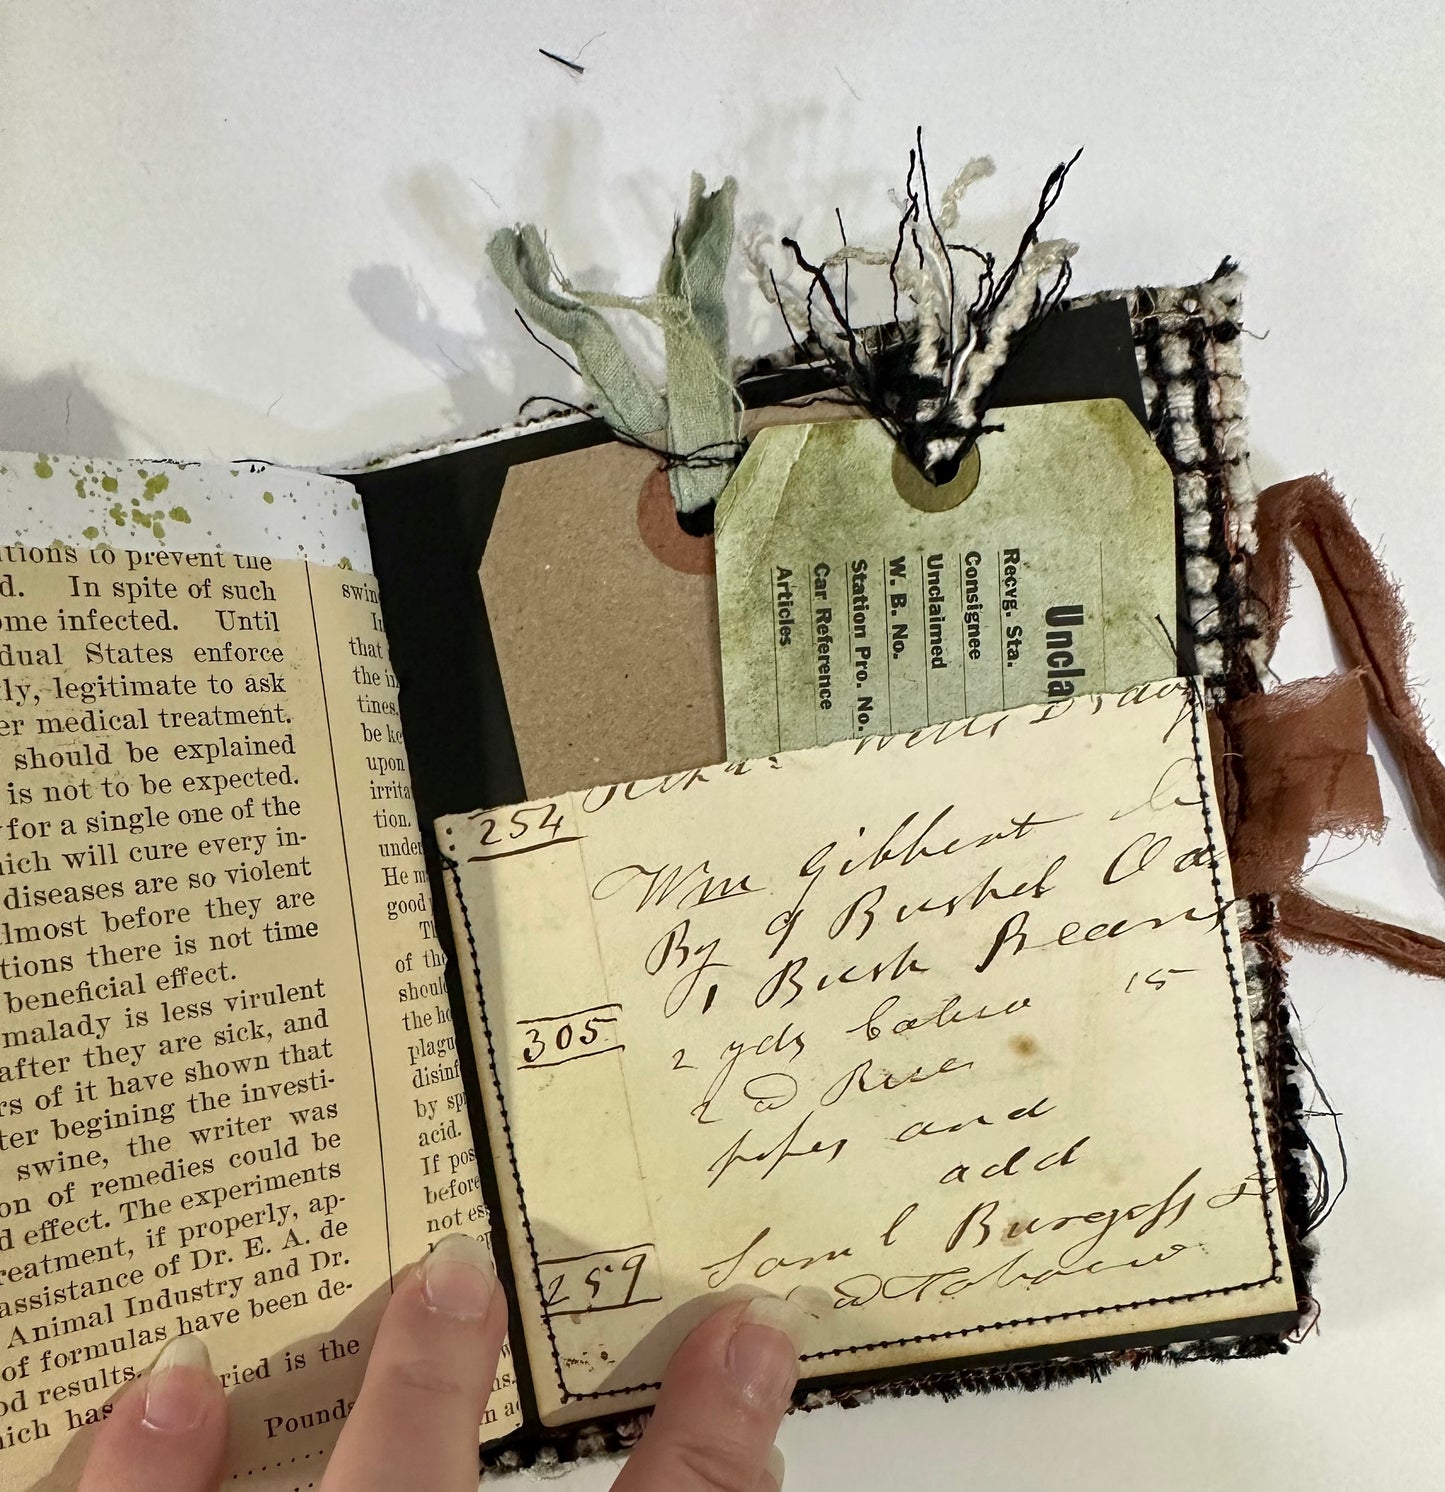 tions to prevent the
d. In spite of such
ome infected. Until
dual States enforce
ly, legitimate to ask
er medical treatment.
should be explained
is not to be expected.
for a single one of the
hich will cure every in-
diseases are so violent
lmost before they are
tions there is not time
beneficial effect.
malady is less virulent
after they are sick, and
rs of it have shown that
ter begining the investi-
swine, the writer was
on of remedies could be
d effect. The experiments
reatment, if properly, ap-
assistance of Dr. E. A. de
Animal Industry and Dr.
of formulas have been de-
od results.
ried is the
hich has
Pounds
swin
In
that
the in
tines.
be ke
upon
irrita
tion.
under
He m
good
Th
of the
should
the ho
plagu
disinf
by sp
acid.
If pos
before
not es
Uncla
Recvg. Sta.
Consignee
Unclaimed
W. B. No.
Station Pro. No.
Car Reference
Articles
254
Wm Gibbert
By 9 Bushel
1 Bush Beans
305
2 yds Calico 15
2 @ Rice
pipes and
add
Saml Burgess
259
@ Tobacco